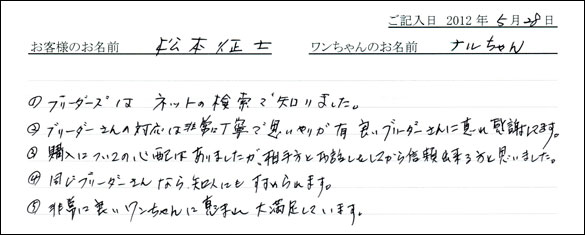 ご記入日 2012年 5月 28日
お客様のお名前 松本 征士 ワンちゃんのお名前 ナルちゃん
①ブリーダーズは ネットの検索で知りました。
②ブリーダーさんの対応は非常に丁寧で思いやりが有 良いブリーダーさんに恵れ 感謝してます。
③購入についての心配はありましたが、相手方とお話しをしてから信頼出来る方と思いました。
④同じブリーダーさんなら、知人にも すすめられます。
⑤非常に良いワンちゃんに恵まれ 大満足しています。